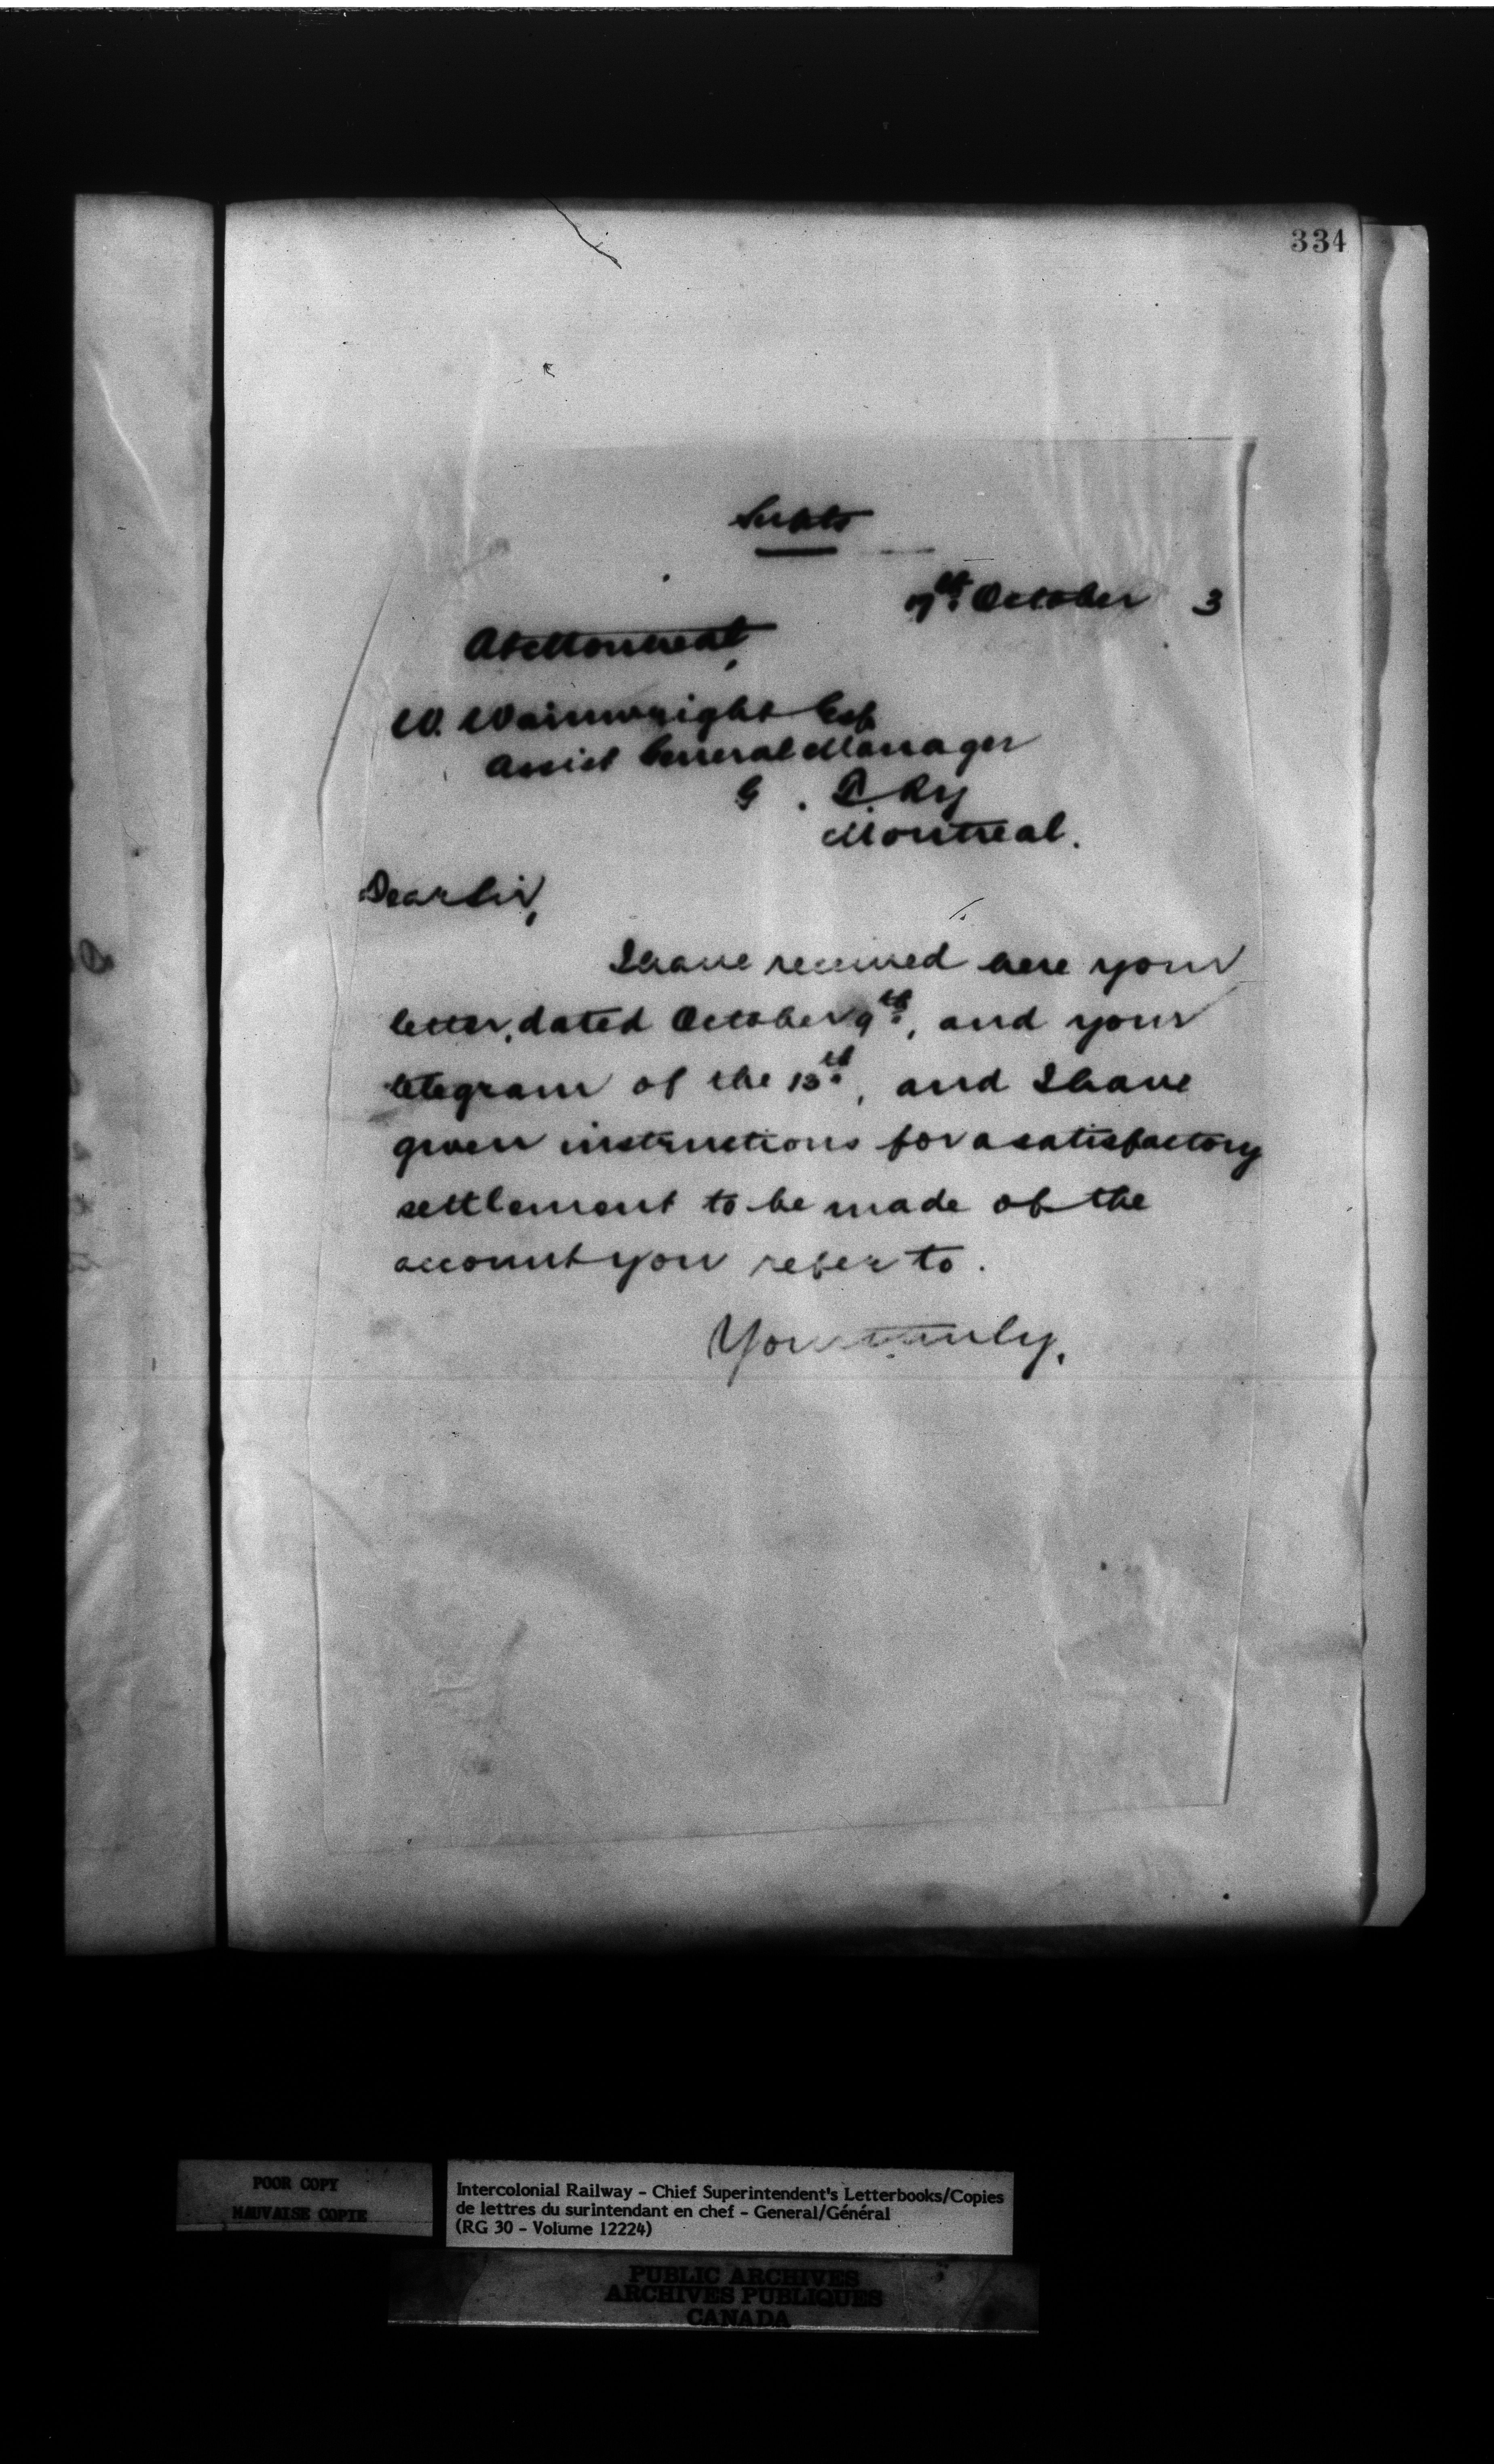 334
Supts
7th October 3
At Montreal,
W. Wainwright Esq
Assist General Manager
G . R. Ry
Montreal.
Dear Sir,
I have received here your
letter, dated October 9th, and your
telegram of the 13th, and I have
given instructions for a satisfactory
settlement to be made of the
account you refer to.
Yours truly,
POOR COPY
MAUVAISE COPIE
Intercolonial Railway - Chief Superintendent's Letterbooks/Copies
de lettres du surintendant en chef - General/Général
(RG 30 - Volume 12224)
PUBLIC ARCHIVES
ARCHIVES PUBLIQUES
CANADA